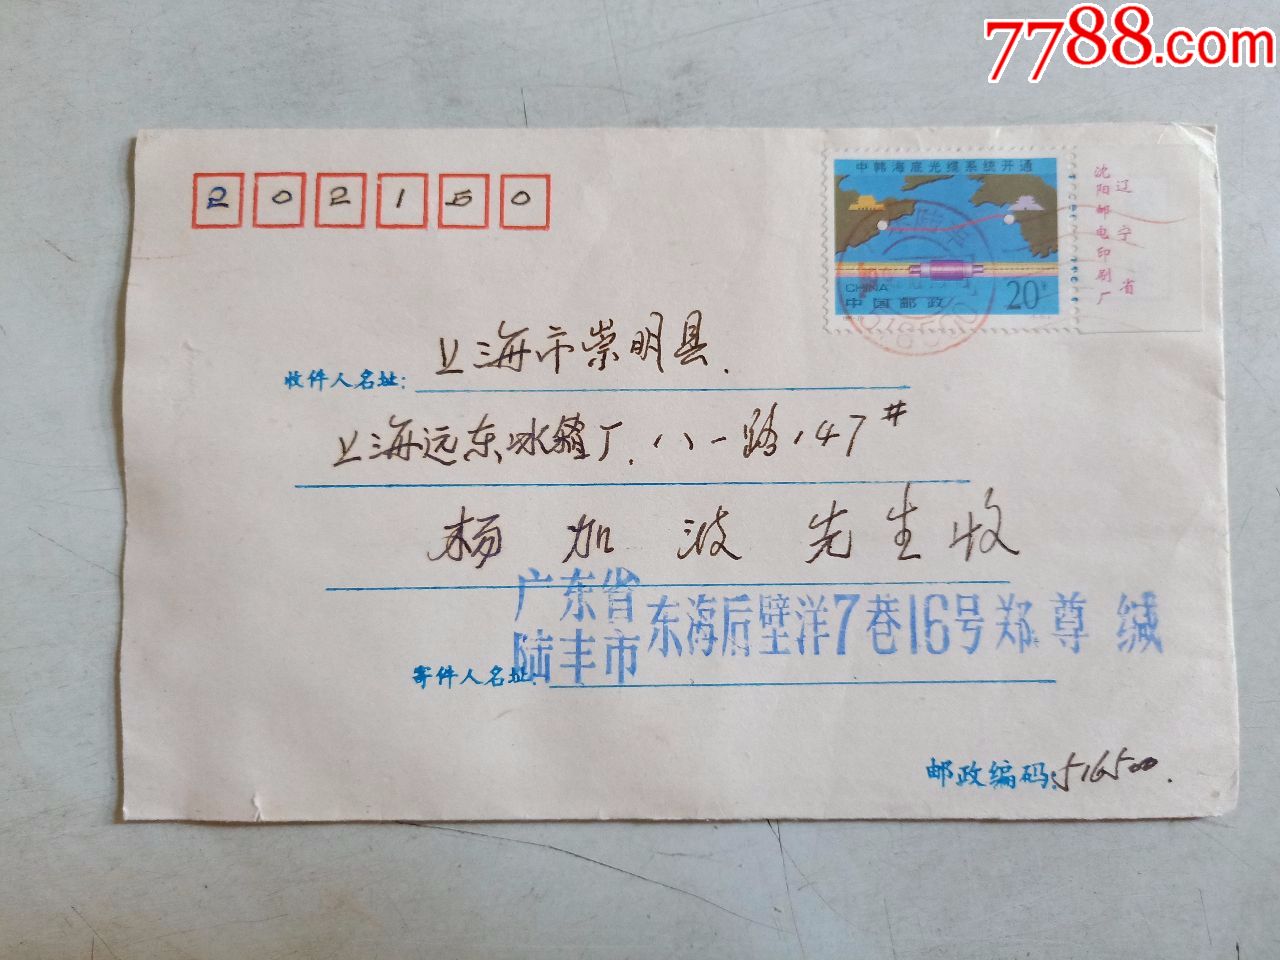 7788.com
202150
中韩海底光缆系统开通
CHINA
中国邮政
20分
辽宁省
沈阳邮电印刷厂
收件人名址: 上海市崇明县.
上海远东冰箱厂.八一路147#
杨加波先生收
广东省
陆丰市
东海后壁洋7巷16号郑尊 缄
寄件人名址:
邮政编码:516500.